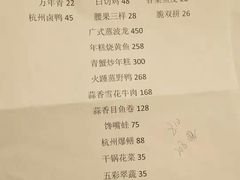 万年青 22 白切鸡 48
杭州卤鸭 45 腰果三样 28 脆双拼 26
广式蒸波龙 450
年糕烧黄鱼 258
青蟹炒年糕 300
火踵蒸野鸭 268
蒜香雪花牛肉 168
蒜香目鱼卷 128
馋嘴蛙 75
杭州爆鳝 88
干锅花菜 35
五彩翠蔬 35